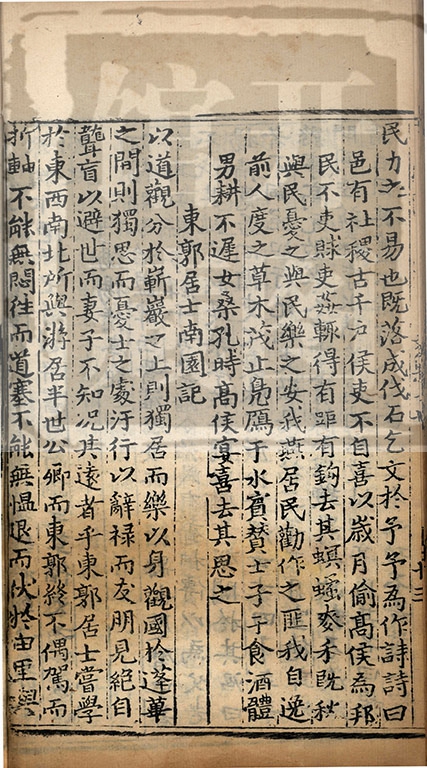 民力之不易也既落成伐石乞文於予予為作詩詩曰
邑有社稷古千户侯吏不自喜以歲月偷髙侯為邦
民不吏賕吏姦輒得有距有鉤去其螟螣麥禾既秋
與民憂之與民樂之安我燕居民勸作之匪我自逸
前人度之草木茂止鳧鴈于水賓贊士子于食酒醴
男耕不遲女桑孔時髙侯宴喜去其思之
東郭居士南園記
以道觀分於嶄巖之上則獨居而樂以身觀國於蓬蓽
之間則獨思而憂士之處汙行以辭禄而友朋見絶自
聾盲以避世而妻子不知况其遠者乎東郭居士嘗學
於東西南北所與游居半世公卿而東郭終不偶駕而
折軸不能無悶往而道塞不能無愠退而伏於田里與